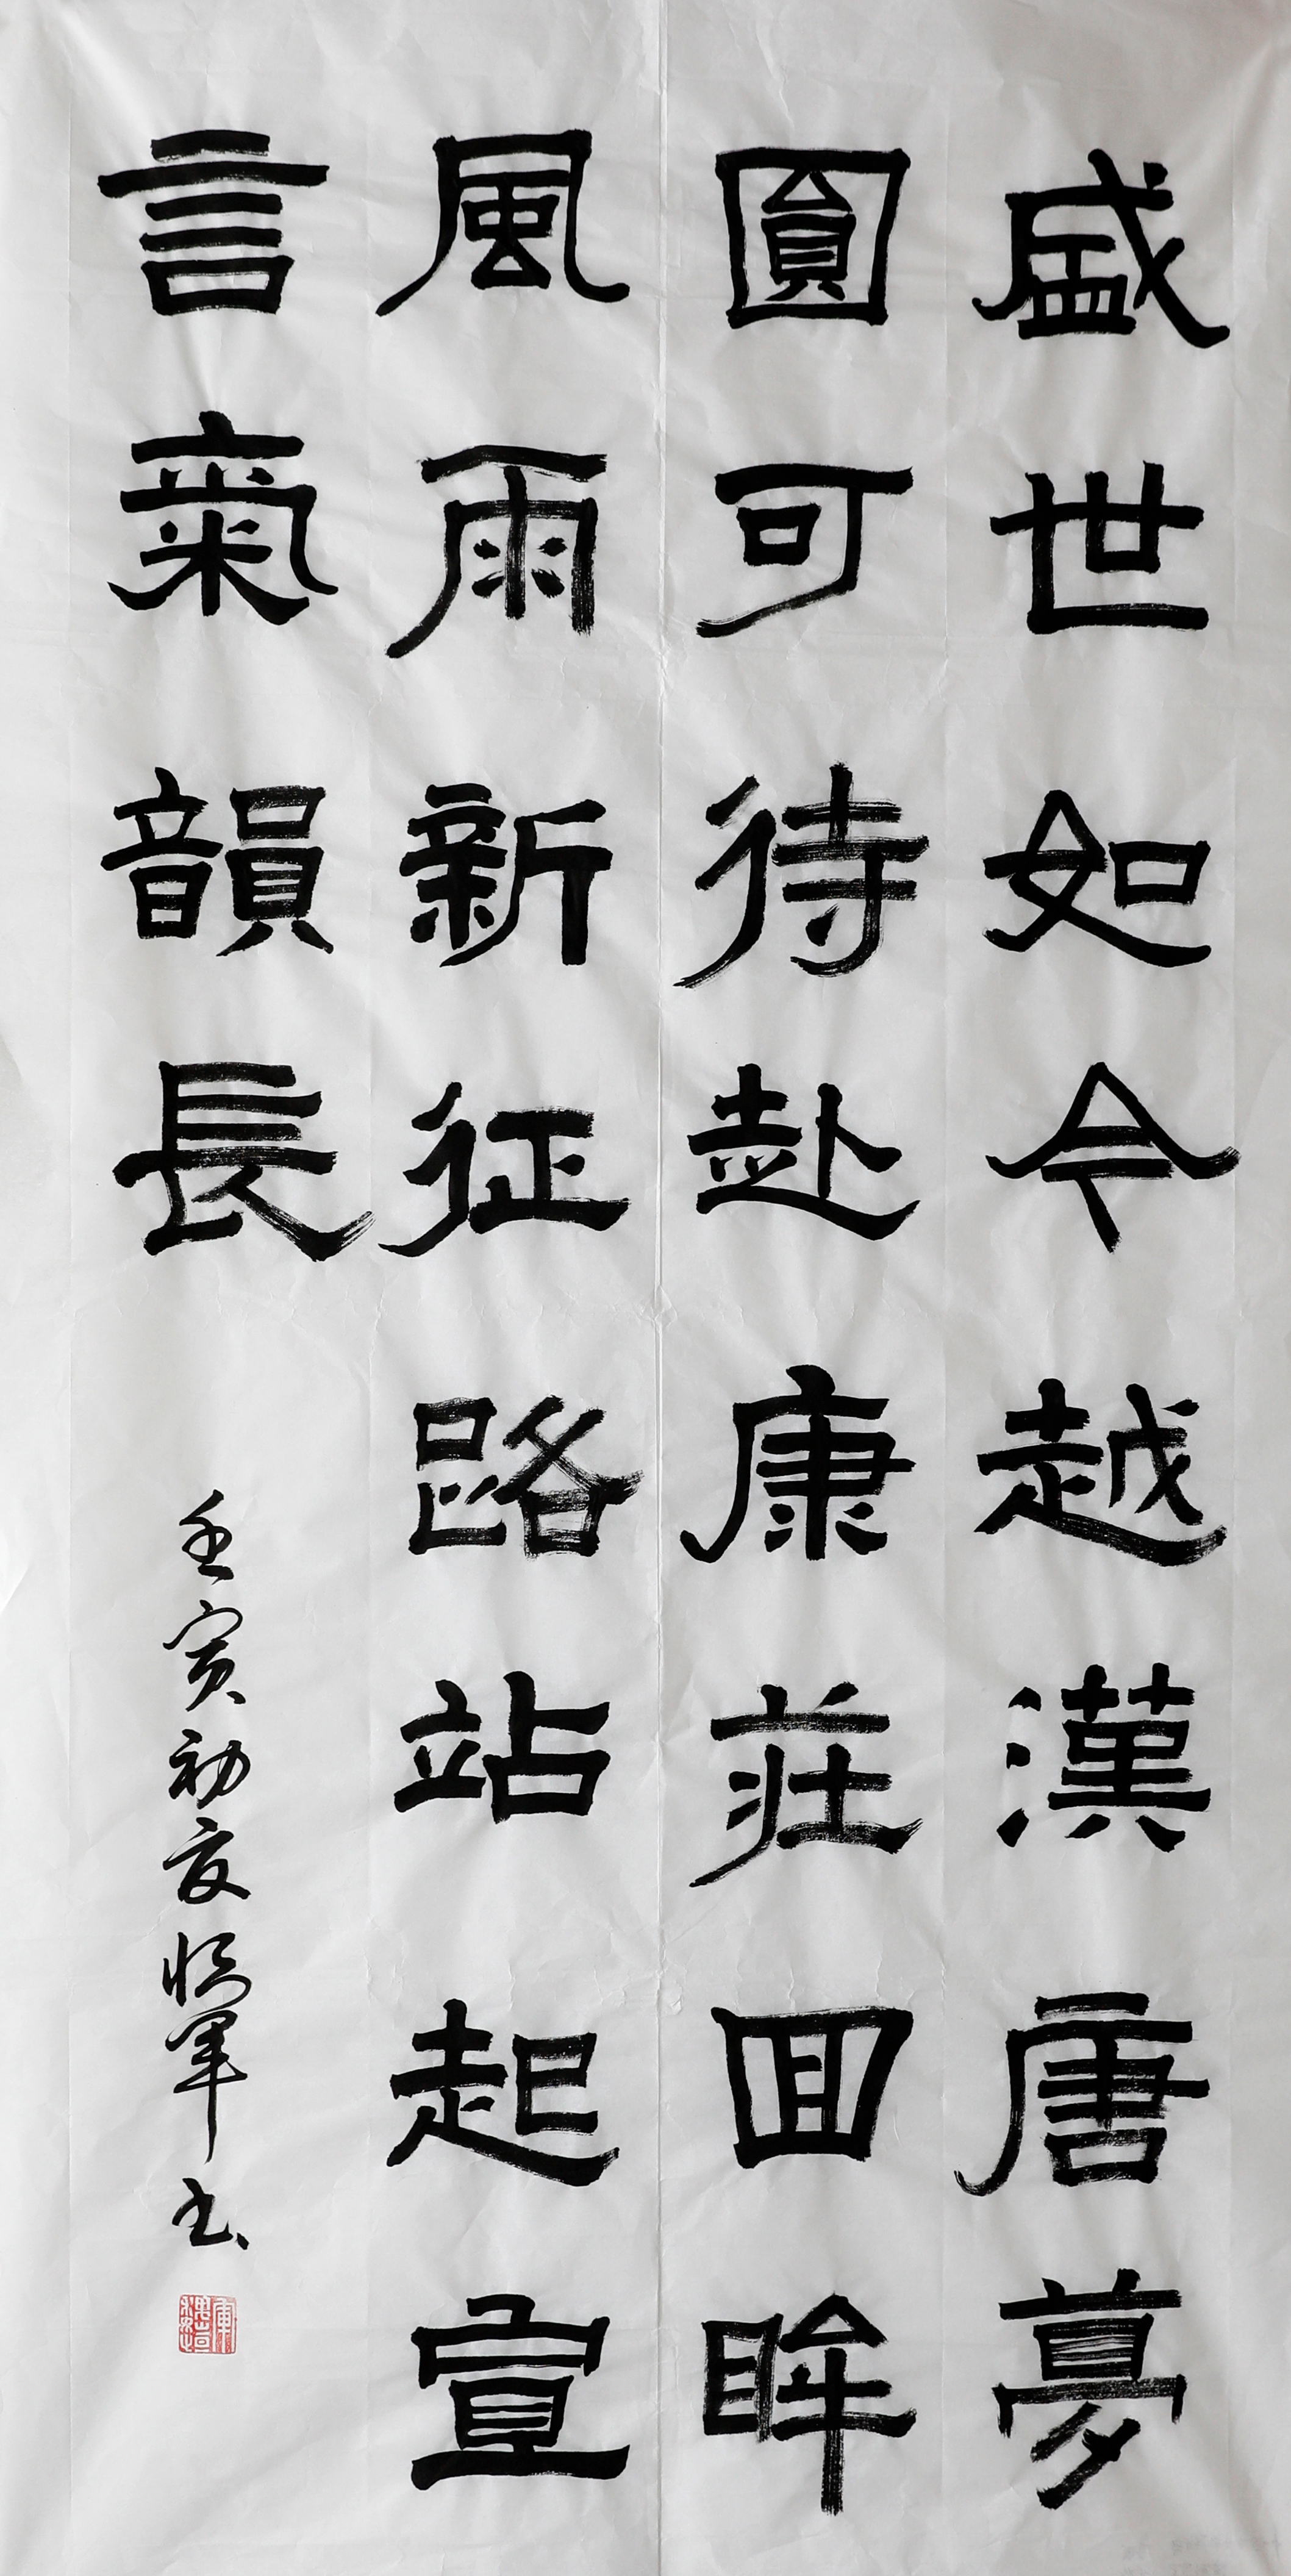 盛世如今越漢唐夢
圓可待赴康莊回眸
風雨新征路站起宣
言氣韻長
壬寅初夏 軍书